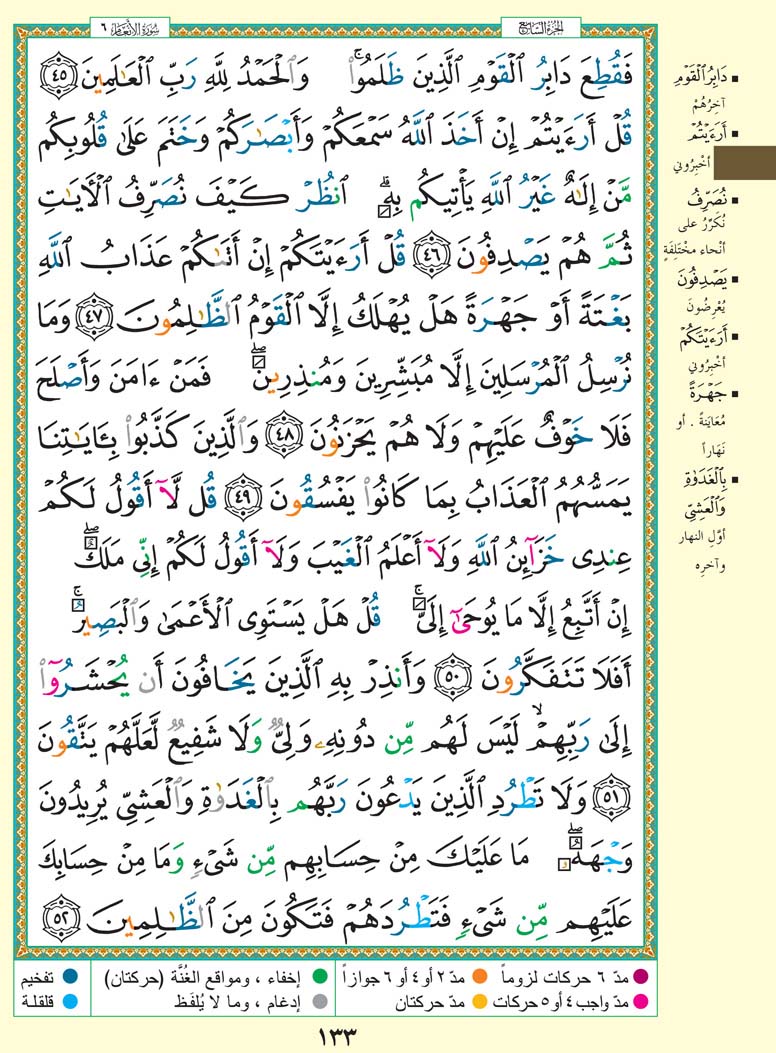 الجزء السابع
سُورَةُ الأَنْعَامِ ٦
فَقُطِعَ دَابِرُ ٱلْقَوْمِ ٱلَّذِينَ ظَلَمُوا۟ ۚ وَٱلْحَمْدُ لِلَّهِ رَبِّ ٱلْعَـٰلَمِينَ ٤٥
قُلْ أَرَءَيْتُمْ إِنْ أَخَذَ ٱللَّهُ سَمْعَكُمْ وَأَبْصَـٰرَكُمْ وَخَتَمَ عَلَىٰ قُلُوبِكُم
مَّنْ إِلَـٰهٌ غَيْرُ ٱللَّهِ يَأْتِيكُم بِهِ ۗ ٱنظُرْ كَيْفَ نُصَرِّفُ ٱلْـَٔايَـٰتِ
ثُمَّ هُمْ يَصْدِفُونَ ٤٦ قُلْ أَرَءَيْتَكُمْ إِنْ أَتَىٰكُمْ عَذَابُ ٱللَّهِ
بَغْتَةً أَوْ جَهْرَةً هَلْ يُهْلَكُ إِلَّا ٱلْقَوْمُ ٱلظَّـٰلِمُونَ ٤٧ وَمَا
نُرْسِلُ ٱلْمُرْسَلِينَ إِلَّا مُبَشِّرِينَ وَمُنذِرِينَ ۖ فَمَنْ ءَامَنَ وَأَصْلَحَ
فَلَا خَوْفٌ عَلَيْهِمْ وَلَا هُمْ يَحْزَنُونَ ٤٨ وَٱلَّذِينَ كَذَّبُوا۟ بِـَٔايَـٰتِنَا
يَمَسُّهُمُ ٱلْعَذَابُ بِمَا كَانُوا۟ يَفْسُقُونَ ٤٩ قُل لَّآ أَقُولُ لَكُمْ
عِندِى خَزَآئِنُ ٱللَّهِ وَلَآ أَعْلَمُ ٱلْغَيْبَ وَلَآ أَقُولُ لَكُمْ إِنِّى مَلَكٌ ۖ
إِنْ أَتَّبِعُ إِلَّا مَا يُوحَىٰٓ إِلَىَّ ۚ قُلْ هَلْ يَسْتَوِى ٱلْأَعْمَىٰ وَٱلْبَصِيرُ ۚ
أَفَلَا تَتَفَكَّرُونَ ٥٠ وَأَنذِرْ بِهِ ٱلَّذِينَ يَخَافُونَ أَن يُحْشَرُوٓا۟
إِلَىٰ رَبِّهِمْ ۙ لَيْسَ لَهُم مِّن دُونِهِۦ وَلِىٌّ وَلَا شَفِيعٌ لَّعَلَّهُمْ يَتَّقُونَ
٥١ وَلَا تَطْرُدِ ٱلَّذِينَ يَدْعُونَ رَبَّهُم بِٱلْغَدَوٰةِ وَٱلْعَشِىِّ يُرِيدُونَ
وَجْهَهُ ۖ مَا عَلَيْكَ مِنْ حِسَابِهِم مِّن شَىْءٍ وَمَا مِنْ حِسَابِكَ
عَلَيْهِم مِّن شَىْءٍ فَتَطْرُدَهُمْ فَتَكُونَ مِنَ ٱلظَّـٰلِمِينَ ٥٢
▪ دَابِرُ ٱلْقَوْمِ
آخِرُهُمْ
▪ أَرَءَيْتُمْ
أخْبِرُوني
▪ نُصَرِّفُ
نُكَرِّرُ على
أنحاء مختَلِفةٍ
▪ يَصْدِفُونَ
يُعْرِضُونَ
▪ أَرَءَيْتَكُمْ
أخْبِرُوني
▪ جَهْرَةً
مُعَايَنةً . أو
نَهَاراً
▪ بِٱلْغَدَوٰةِ
وَٱلْعَشِىِّ
أوَّلِ النهار
وآخِرِه
مدّ ٦ حركات لزوماً مدّ ٢ أو ٤ أو ٦ جوازاً إخفاء ، ومواقع الغُنَّة (حركتان) تفخيم
مدّ واجب ٤ أو ٥ حركات مدّ حركتان إدغام ، وما لا يُلفَظ قلقلة
١٣٣